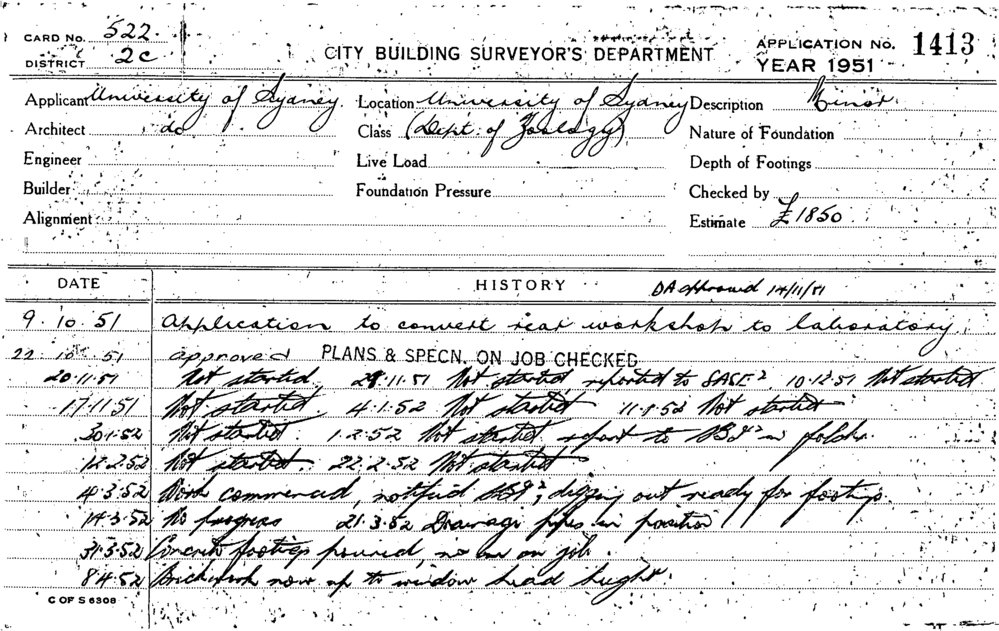 CARD No. 522.
DISTRICT 2c
CITY BUILDING SURVEYOR'S DEPARTMENT
APPLICATION No. 1413
YEAR 1951
Applicant University of Sydney Location University of Sydney Description Minor
Architect do Class (Dept. of Zoology) Nature of Foundation
Engineer Live Load Depth of Footings
Builder Foundation Pressure Checked by
Alignment Estimate £1850
DATE HISTORY DA approved 14/11/51
9.10.51 Application to convert rear workshop to laboratory
22.10.51 approved PLANS & SPECN. ON JOB CHECKED
20.11.51 Not started, 29.11.51 Not started, reported to 10.12.51 Not started
17.11.51 Not started. 4.1.52 Not started 11.1.52 Not started
30.1.52 Not started. 1.2.52 Not started, report to in folder.
12.2.52 Not started. 22.2.52 Not started
4.3.52 Work commenced, notified digging out ready for footings
14.3.52 No progress 21.3.52 Drainage pipes in position
31.3.52 Concrete footings poured, no one on job.
8.4.52 Brickwork now up to window head height
C OF S 6308